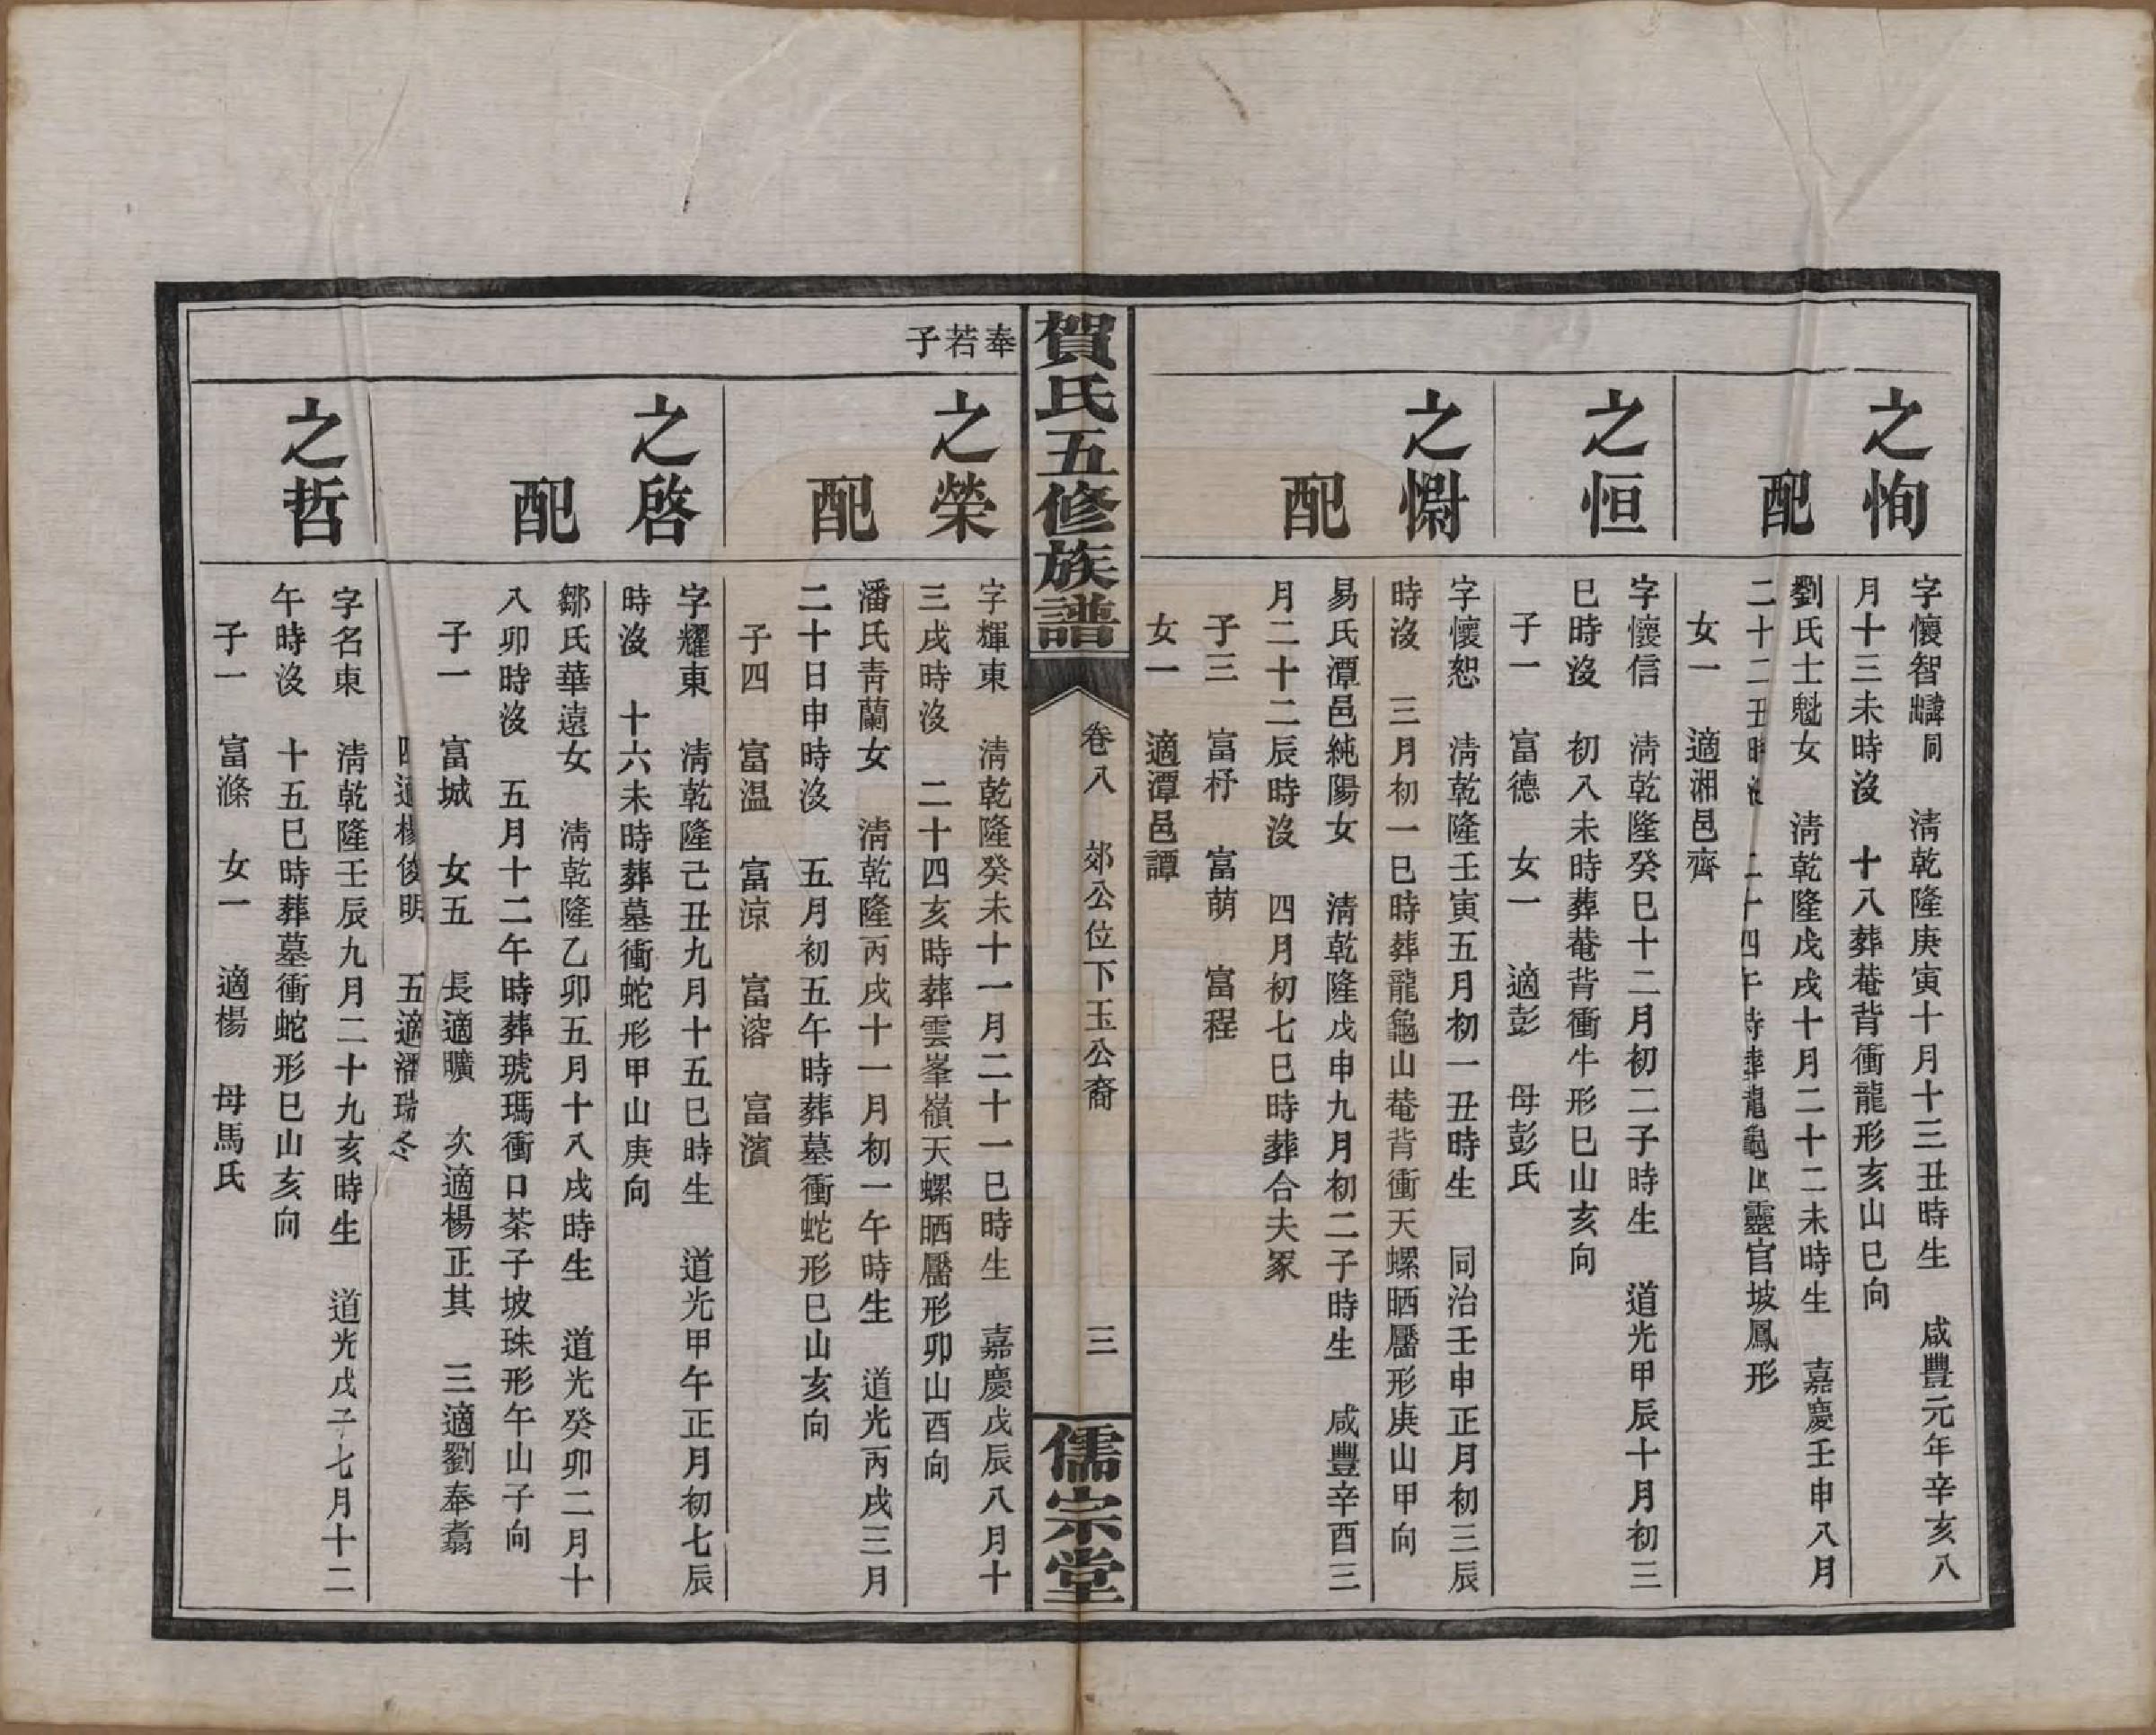 之恂
字懷智譜同　清乾隆庚寅十月十三丑時生　咸豐元年辛亥八
月十三未時沒　十八葬菴背衝龍形亥山巳向
配
劉氏士魁女　清乾隆戊戌十月二十二未時生　嘉慶壬申八月
二十二丑時沒　二十四午時葬龍龜山靈官坡鳳形
女一　適湘邑齊
之恒
字懷信　清乾隆癸巳十二月初二子時生　道光甲辰十月初三
巳時沒　初入未時葬菴背衝牛形巳山亥向
子一　富德　女一　適彭　母彭氏
之㷉
字懷恕　清乾隆壬寅五月初一丑時生　同治壬申正月初三辰
時沒　三月初一巳時葬龍龜山菴背衝天螺晒靨形庚山甲向
配
易氏潭邑純陽女　清乾隆戊申九月初二子時生　咸豐辛酉三
月二十二辰時沒　四月初七巳時葬合夫冢
子三　富杼　富萌　富程
女一　適潭邑譚
賀氏五修族譜
卷八　郊公位下玉公裔　三
儒宗堂
奉若子
之榮
字輝東　清乾隆癸未十一月二十一巳時生　嘉慶戊辰八月十
三戌時沒　二十四亥時葬雲峯嶺天螺晒靨形卯山酉向
配
潘氏青蘭女　清乾隆丙戌十一月初一午時生　道光丙戌三月
二十日申時沒　五月初五午時葬墓衝蛇形巳山亥向
子四　富温　富涼　富溶　富濱
之啓
字耀東　清乾隆己丑九月十五巳時生　道光甲午正月初七辰
時沒　十六未時葬墓衝蛇形甲山庚向
配
鄒氏華遠女　清乾隆乙卯五月十八戌時生　道光癸卯二月十
八卯時沒　五月十二午時葬琥瑪衝口茶子坡珠形午山子向
子一　富城　女五　長適曠　次適楊正其　三適劉奉翥
四適楊俊明　五適潘瑞冬
之哲
字名東　清乾隆壬辰九月二十九亥時生　道光戊子七月十二
午時沒　十五巳時葬墓衝蛇形巳山亥向
子一　富滌　女一　適楊　母馬氏